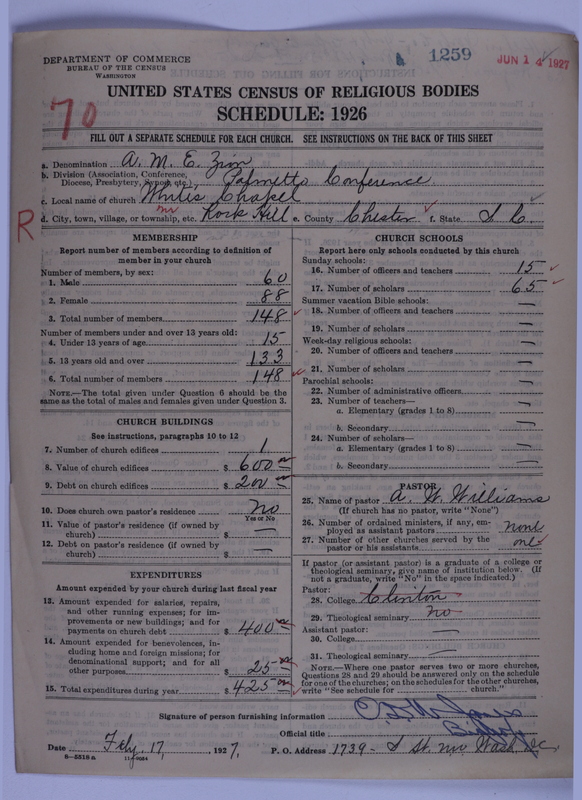 DEPARTMENT OF COMMERCE
BUREAU OF THE CENSUS
WASHINGTON
1259
JUN 14 1927
UNITED STATES CENSUS OF RELIGIOUS BODIES
SCHEDULE: 1926
70
FILL OUT A SEPARATE SCHEDULE FOR EACH CHURCH. SEE INSTRUCTIONS ON THE BACK OF THIS SHEET
a. Denomination A. M. E. Zion
b. Division (Association, Conference, Diocese, Presbytery, Synod, etc.) Palmetto Conference
c. Local name of church Whites Chapel
d. City, town, village, or township, etc. nr Rock Hill e. County Chester f. State S C.
R
MEMBERSHIP
Report number of members according to definition of member in your church
Number of members, by sex:
1. Male 60
2. Female 88
3. Total number of members 148
Number of members under and over 13 years old:
4. Under 13 years of age 15
5. 13 years old and over 133
6. Total number of members 148
NOTE.—The total given under Question 6 should be same as the total of males and females given under Question 3.
CHURCH BUILDINGS
See instructions, paragraphs 10 to 12
7. Number of church edifices 1
8. Value of church edifices $ 600 00
9. Debt on church edifices $ 200 00
10. Does church own pastor's residence No
Yes or No
11. Value of pastor's residence (if owned by church) $ —
12. Debt on pastor's residence (if owned by church) $ —
EXPENDITURES
Amount expended by your church during last fiscal year
13. Amount expended for salaries, repairs, and other running expenses; for improvements or new buildings; and for payments on church debt $ 400 00
14. Amount expended for benevolences, including home and foreign missions; for denominational support; and for all other purposes $ 25 00
15. Total expenditures during year $ 425 00
CHURCH SCHOOLS
Report here only schools conducted by this church
Sunday schools:
16. Number of officers and teachers 15
17. Number of scholars 65
Summer vacation Bible schools:
18. Number of officers and teachers —
19. Number of scholars —
Week-day religious schools:
20. Number of officers and teachers —
21. Number of scholars —
Parochial schools:
22. Number of administrative officers —
23. Number of teachers—
a. Elementary (grades 1 to 8) —
b. Secondary —
24. Number of scholars—
a. Elementary (grades 1 to 8) —
b. Secondary —
PASTOR
25. Name of pastor A. W. Williams
(If church has no pastor, write "None")
26. Number of ordained ministers, if any, employed as assistant pastors none
27. Number of other churches served by the pastor or his assistants one
If pastor (or assistant pastor) is a graduate of a college or theological seminary, give name of institution below. (If not a graduate, write "No" in the space indicated.)
Pastor:
28. College Clinton
29. Theological seminary no
Assistant pastor:
30. College —
31. Theological seminary —
NOTE.—Where one pastor serves two or more churches, Questions 28 and 29 should be answered only on the schedule for one of the churches; on the schedules for the other churches, write "See schedule for church."
Signature of person furnishing information
Official title Bishop
Date Feby. 17, 1927. P. O. Address 1739 - S St. NW Wash. D.C.
8—5518 a